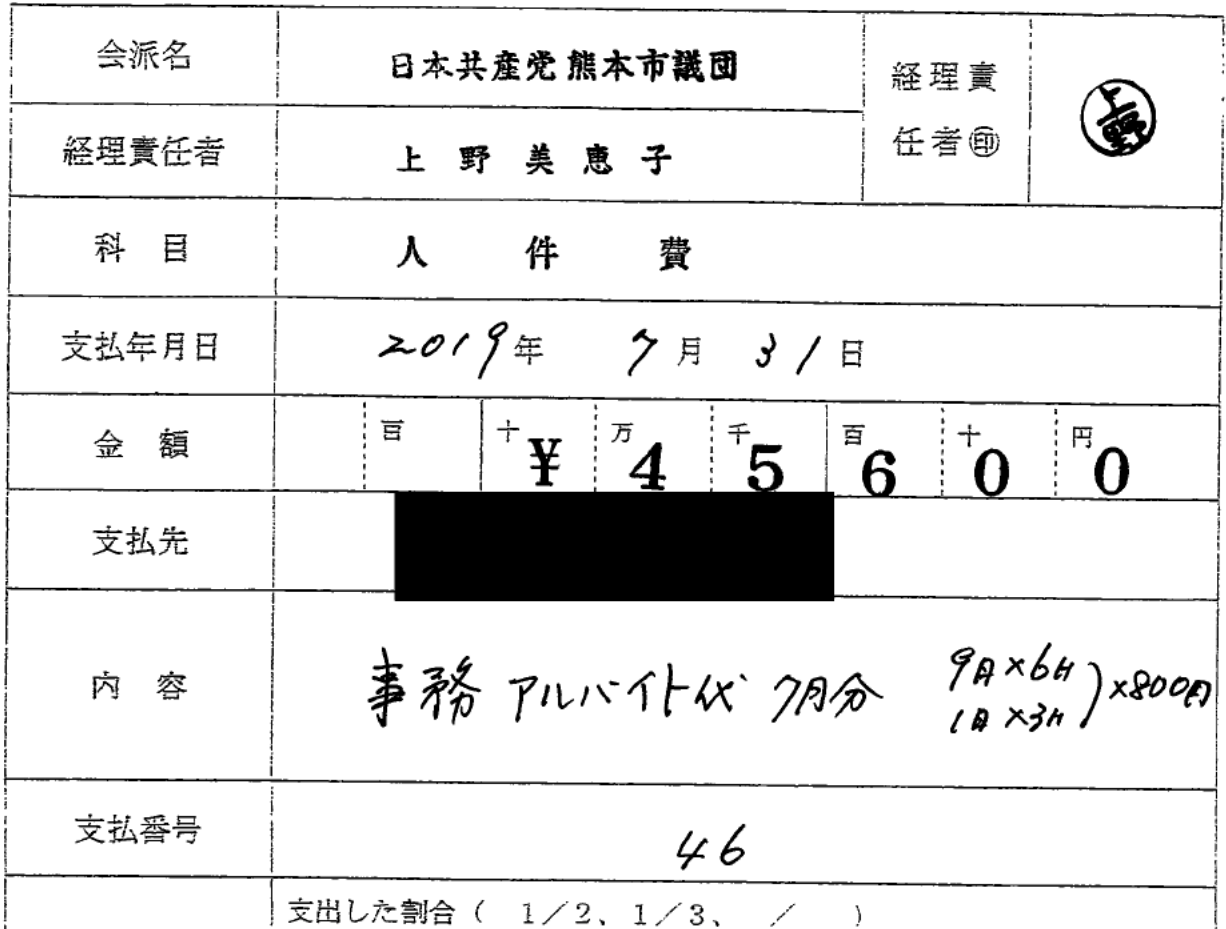 会派名 日本共産党熊本市議団 経理責任者㊞ 上野
経理責任者 上野美恵子
科目 人件費
支払年月日 2019年 7月 31日
金額 百 十 万 千 百 十 円
¥45600
支払先
内容 事務アルバイト代 7月分 9日×6H
1日×3H)×800円
支払番号 46
支出した割合( 1/2、1/3、 / )